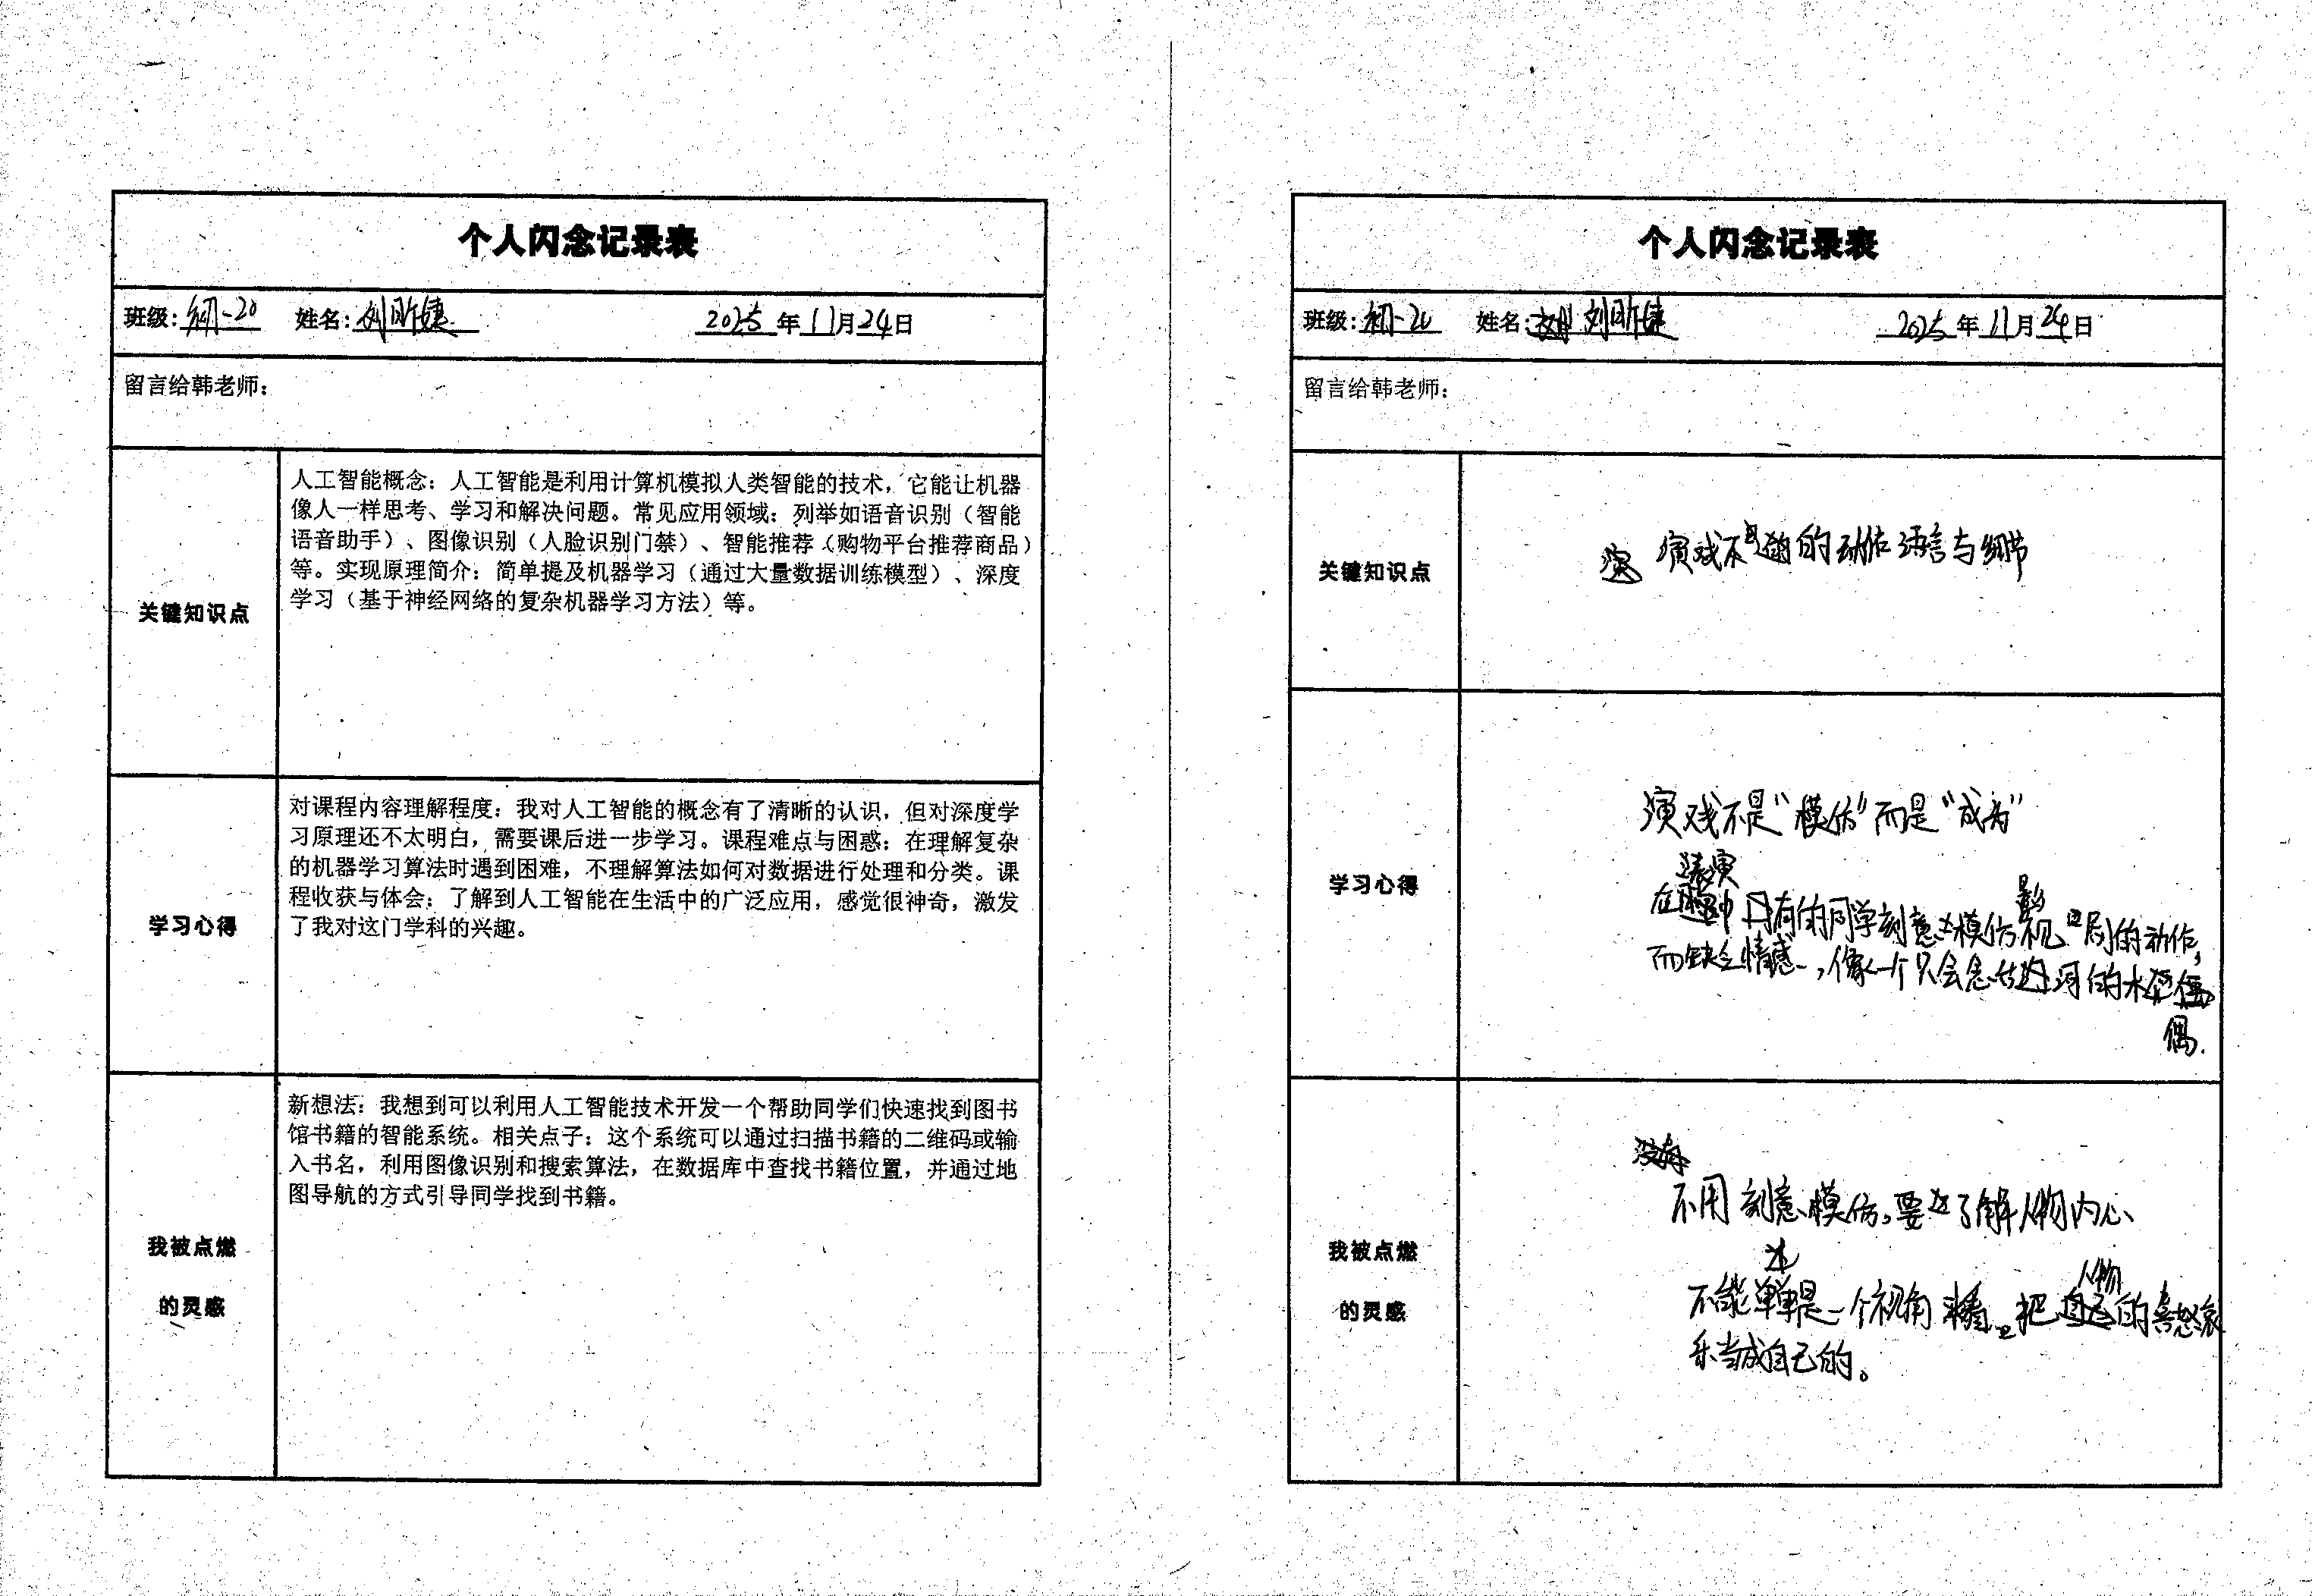 个人闪念记录表
班级：初一20 姓名：刘昕婕 2025年11月24日
留言给韩老师：
关键知识点
人工智能概念：人工智能是利用计算机模拟人类智能的技术，它能让机器
像人一样思考、学习和解决问题。常见应用领域：列举如语音识别（智能
语音助手）、图像识别（人脸识别门禁）、智能推荐（购物平台推荐商品）
等。实现原理简介：简单提及机器学习（通过大量数据训练模型）、深度
学习（基于神经网络的复杂机器学习方法）等。
学习心得
对课程内容理解程度：我对人工智能的概念有了清晰的认识，但对深度学
习原理还不太明白，需要课后进一步学习。课程难点与困惑：在理解复杂
的机器学习算法时遇到困难，不理解算法如何对数据进行处理和分类。课
程收获与体会：了解到人工智能在生活中的广泛应用，感觉很神奇，激发
了我对这门学科的兴趣。
我被点燃
的灵感
新想法：我想到可以利用人工智能技术开发一个帮助同学们快速找到图书
馆书籍的智能系统。相关点子：这个系统可以通过扫描书籍的二维码或输
入书名，利用图像识别和搜索算法，在数据库中查找书籍位置，并通过地
图导航的方式引导同学找到书籍。
个人闪念记录表
班级：初一20 姓名：刘昕婕 2025年11月24日
留言给韩老师：
关键知识点
演戏不的动作语言与细节
学习心得
演戏不是“模仿”而是“成为”
在表演中有的同学刻意去模仿影视剧的动作，
而缺乏情感，像一个只会念台词的木偶
我被点燃
的灵感
不用刻意模仿，要去了解人物内心
不能单单是一个视角来看，把人物的喜怒哀
乐当成自己的。